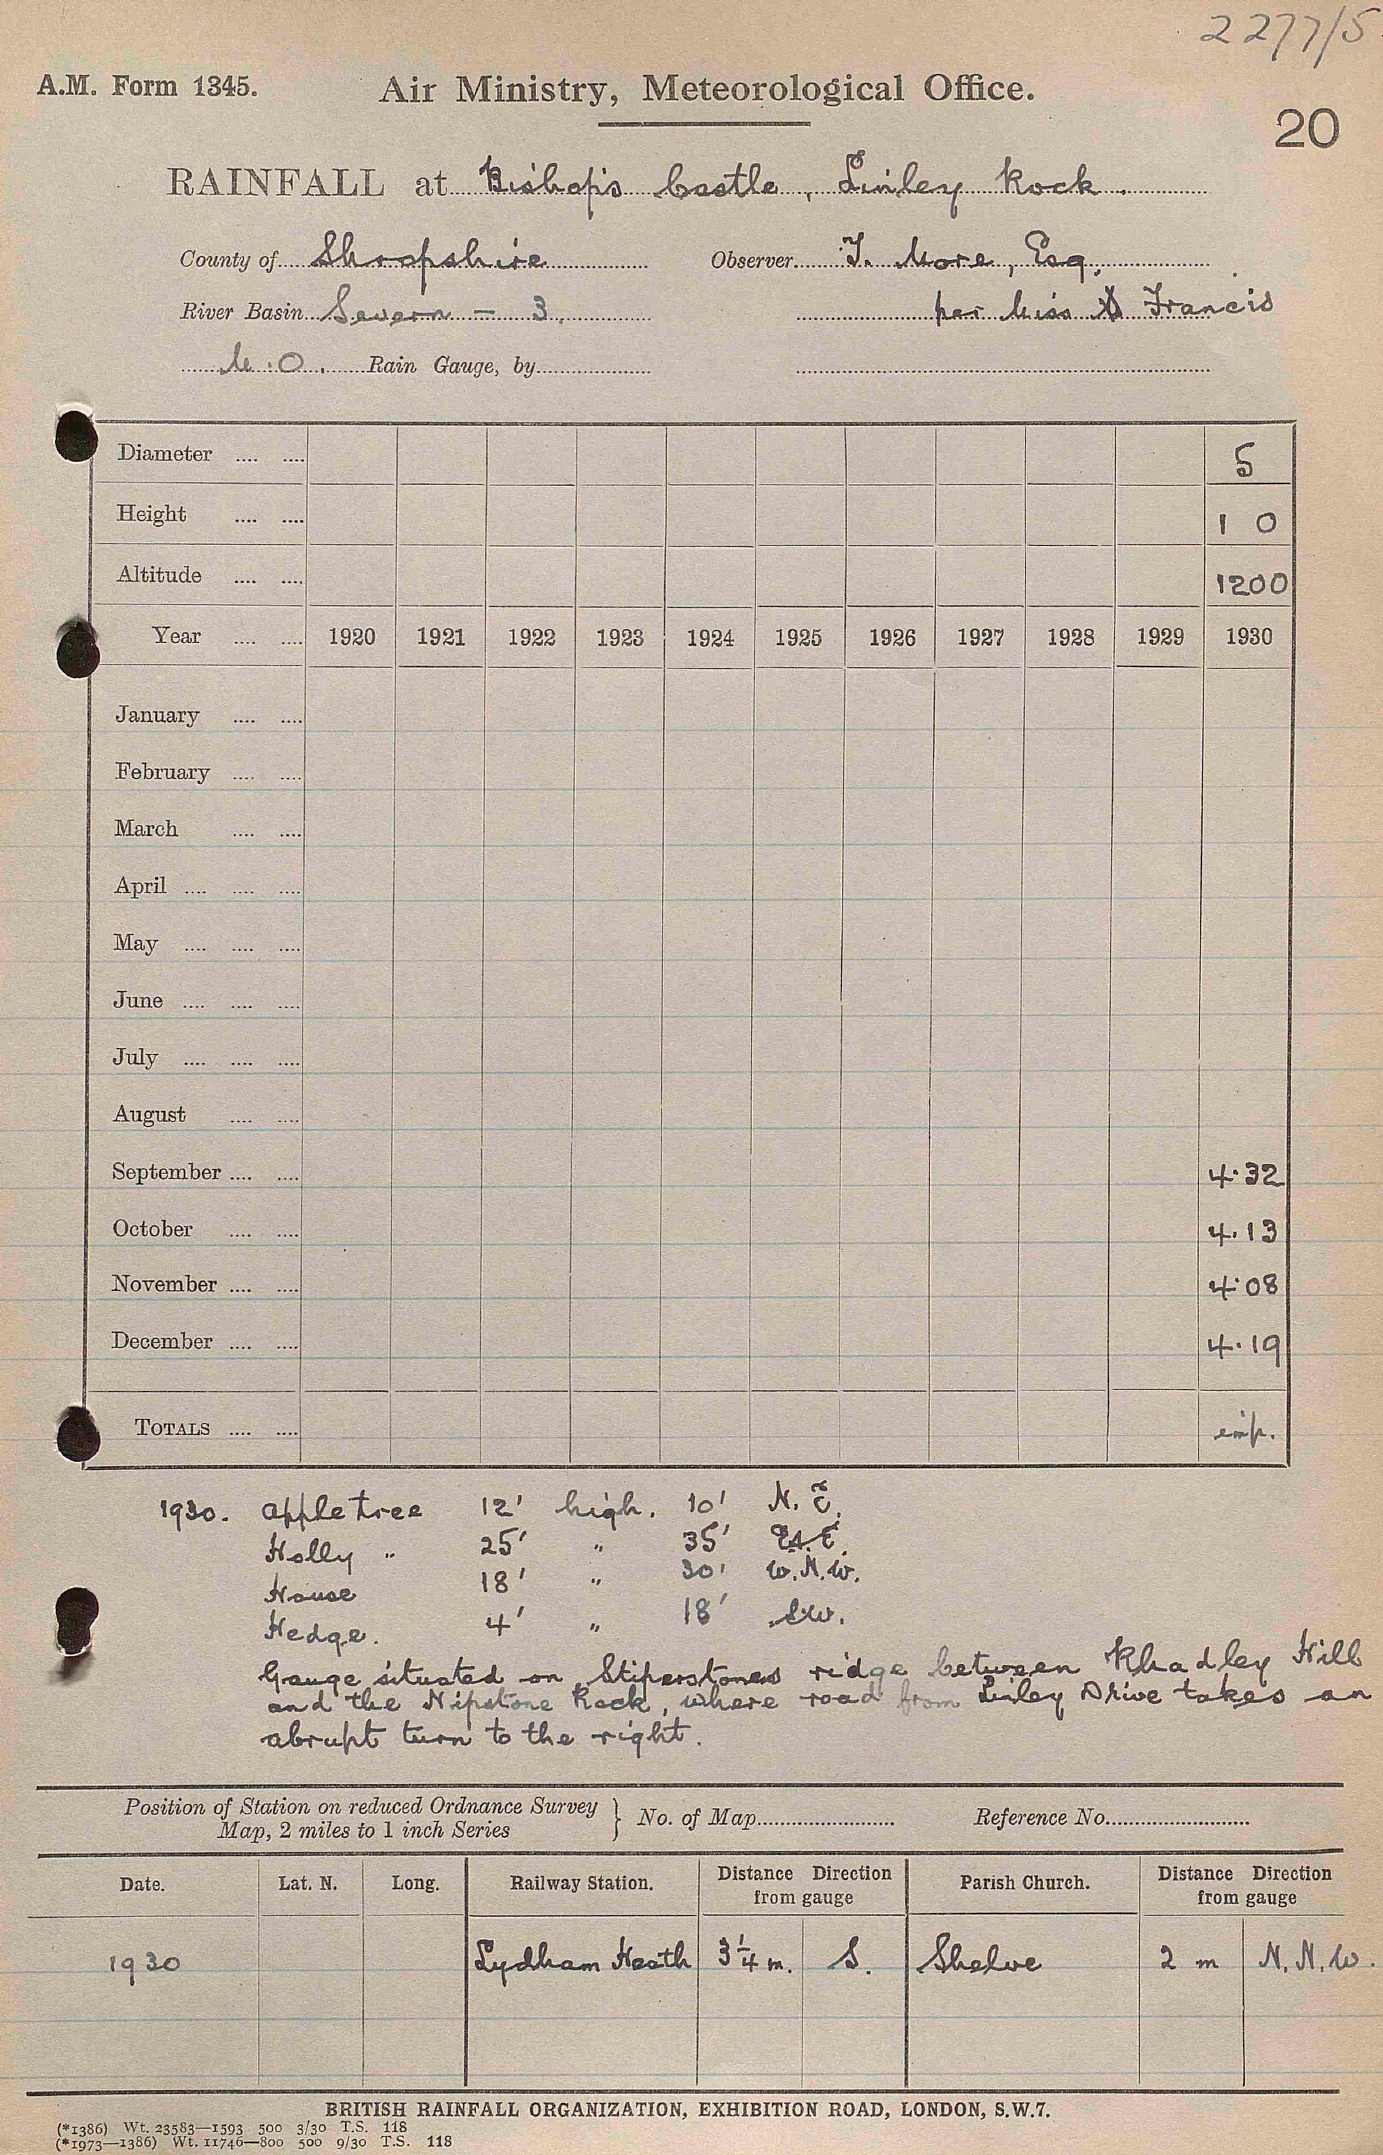 2277/5
A.M. Form 1345. Air Ministry, Meteorological Office.
20
RAINFALL at Bishop's Castle, Linley Rock.
County of Shropshire Observer J. More, Esq.
River Basin Severn - 3. per Miss Francis
M.O. Rain Gauge, by
Diameter .... .... 5
Height .... .... 1 0
Altitude .... .... 1200
Year .... .... 1920 1921 1922 1923 1924 1925 1926 1927 1928 1929 1930
January .... ....
February .... ....
March .... ....
April .... .... ....
May .... .... ....
June .... .... ....
July .... .... ....
August .... ....
September .... .... 4.32
October .... .... 4.13
November .... .... 4.08
December .... .... 4.19
TOTALS .... .... imp.
1930. Apple tree 12' high. 10' N.E.
Holly " 25' " 35'
House 18' " 30' W.N.W.
Hedge. 4' " 18' S.W.
Gauge situated on Stiperstones ridge between Rhadley Hill
and the Nipstone Rock, where road from Linley Drive takes an
abrupt turn to the right.
Position of Station on reduced Ordnance Survey
Map, 2 miles to 1 inch Series } No. of Map Reference No.
Date. Lat. N. Long. Railway Station. Distance Direction from gauge Parish Church. Distance Direction from gauge
1930 Lydham Heath 3¼ m. S. Shelve 2 m N.N.W.
BRITISH RAINFALL ORGANIZATION, EXHIBITION ROAD, LONDON, S.W.7.
(*1386) Wt. 23583—1593 500 3/30 T.S. 118
(*1973—1386) Wt. 11746—800 500 9/30 T.S. 118